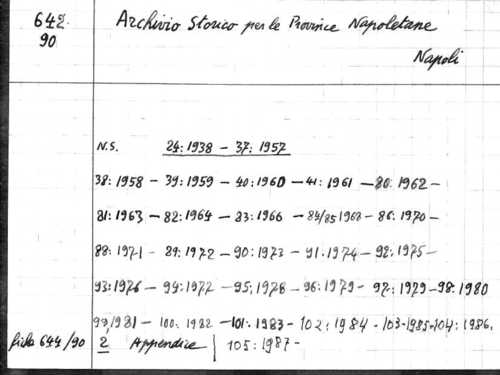 642 Archivio Storico per le Province Napoletane
90
Napoli
N.S. 24:1938 – 37:1957
38:1958 – 39:1959 – 40:1960 – 41:1961 – 80:1962 –
81:1963 – 82:1964 – 83:1966 – 84/85 1968 – 86:1970 –
88:1971 – 89:1972 – 90:1973 – 91.1974 – 92:1975 –
93:1976 – 94:1977 – 95:1978 – 96:1979 – 97:1979 – 98:1980
99:1981 – 100:1982 – 101:1983 – 102:1984 - 103-1985-104:1986.
644/90 2 Appendice 105:1987 –